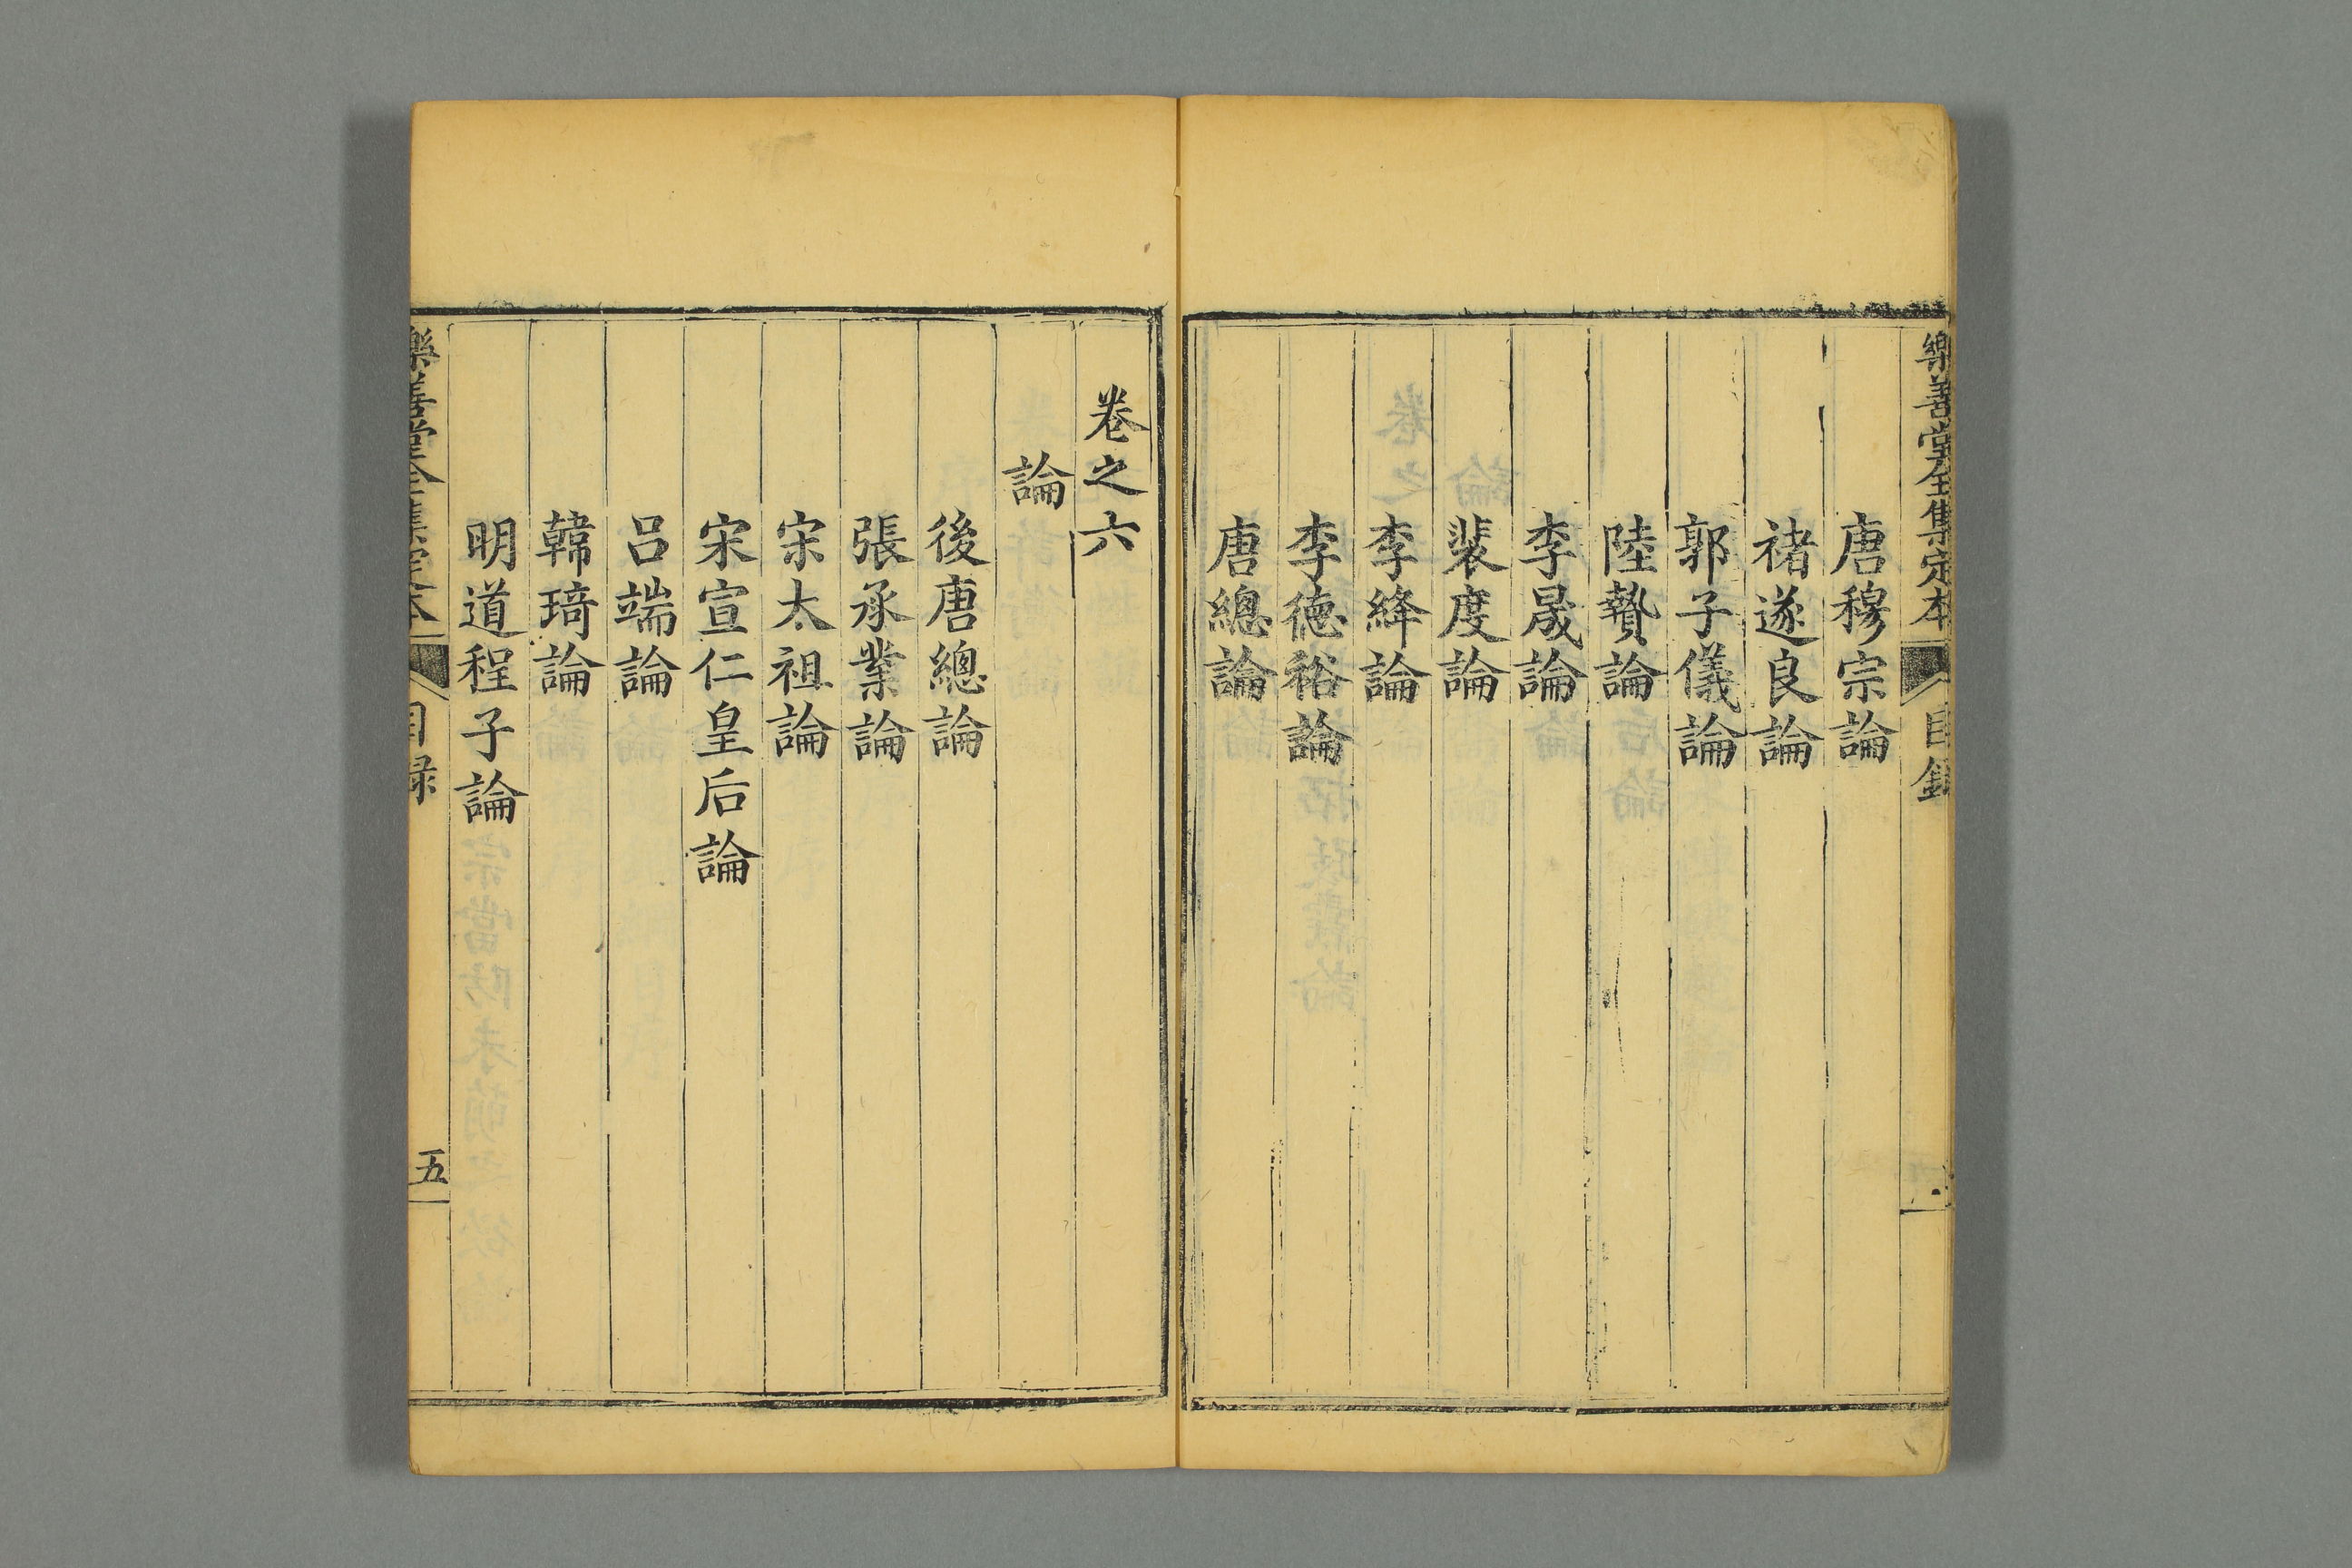 樂善堂全集定本
目錄
唐穆宗論
禇遂良論
郭子儀論
陸贄論
李晟論
裴度論
李絳論
李德裕論
唐總論
卷之六
論
後唐總論
張承業論
宋太祖論
宋宣仁皇后論
呂端論
韓琦論
明道程子論
樂善堂全集定本
目録
五